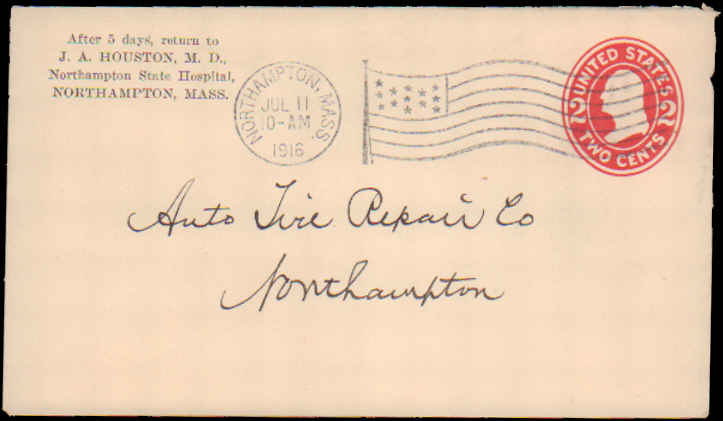 After 5 days, return to
J. A. HOUSTON, M. D.,
Northampton State Hospital,
NORTHAMPTON, MASS.
NORTHAMPTON, MASS.
JUL 11
10-AM
1916
UNITED STATES
2 2
TWO CENTS
Auto Tire Repair Co
Northampton